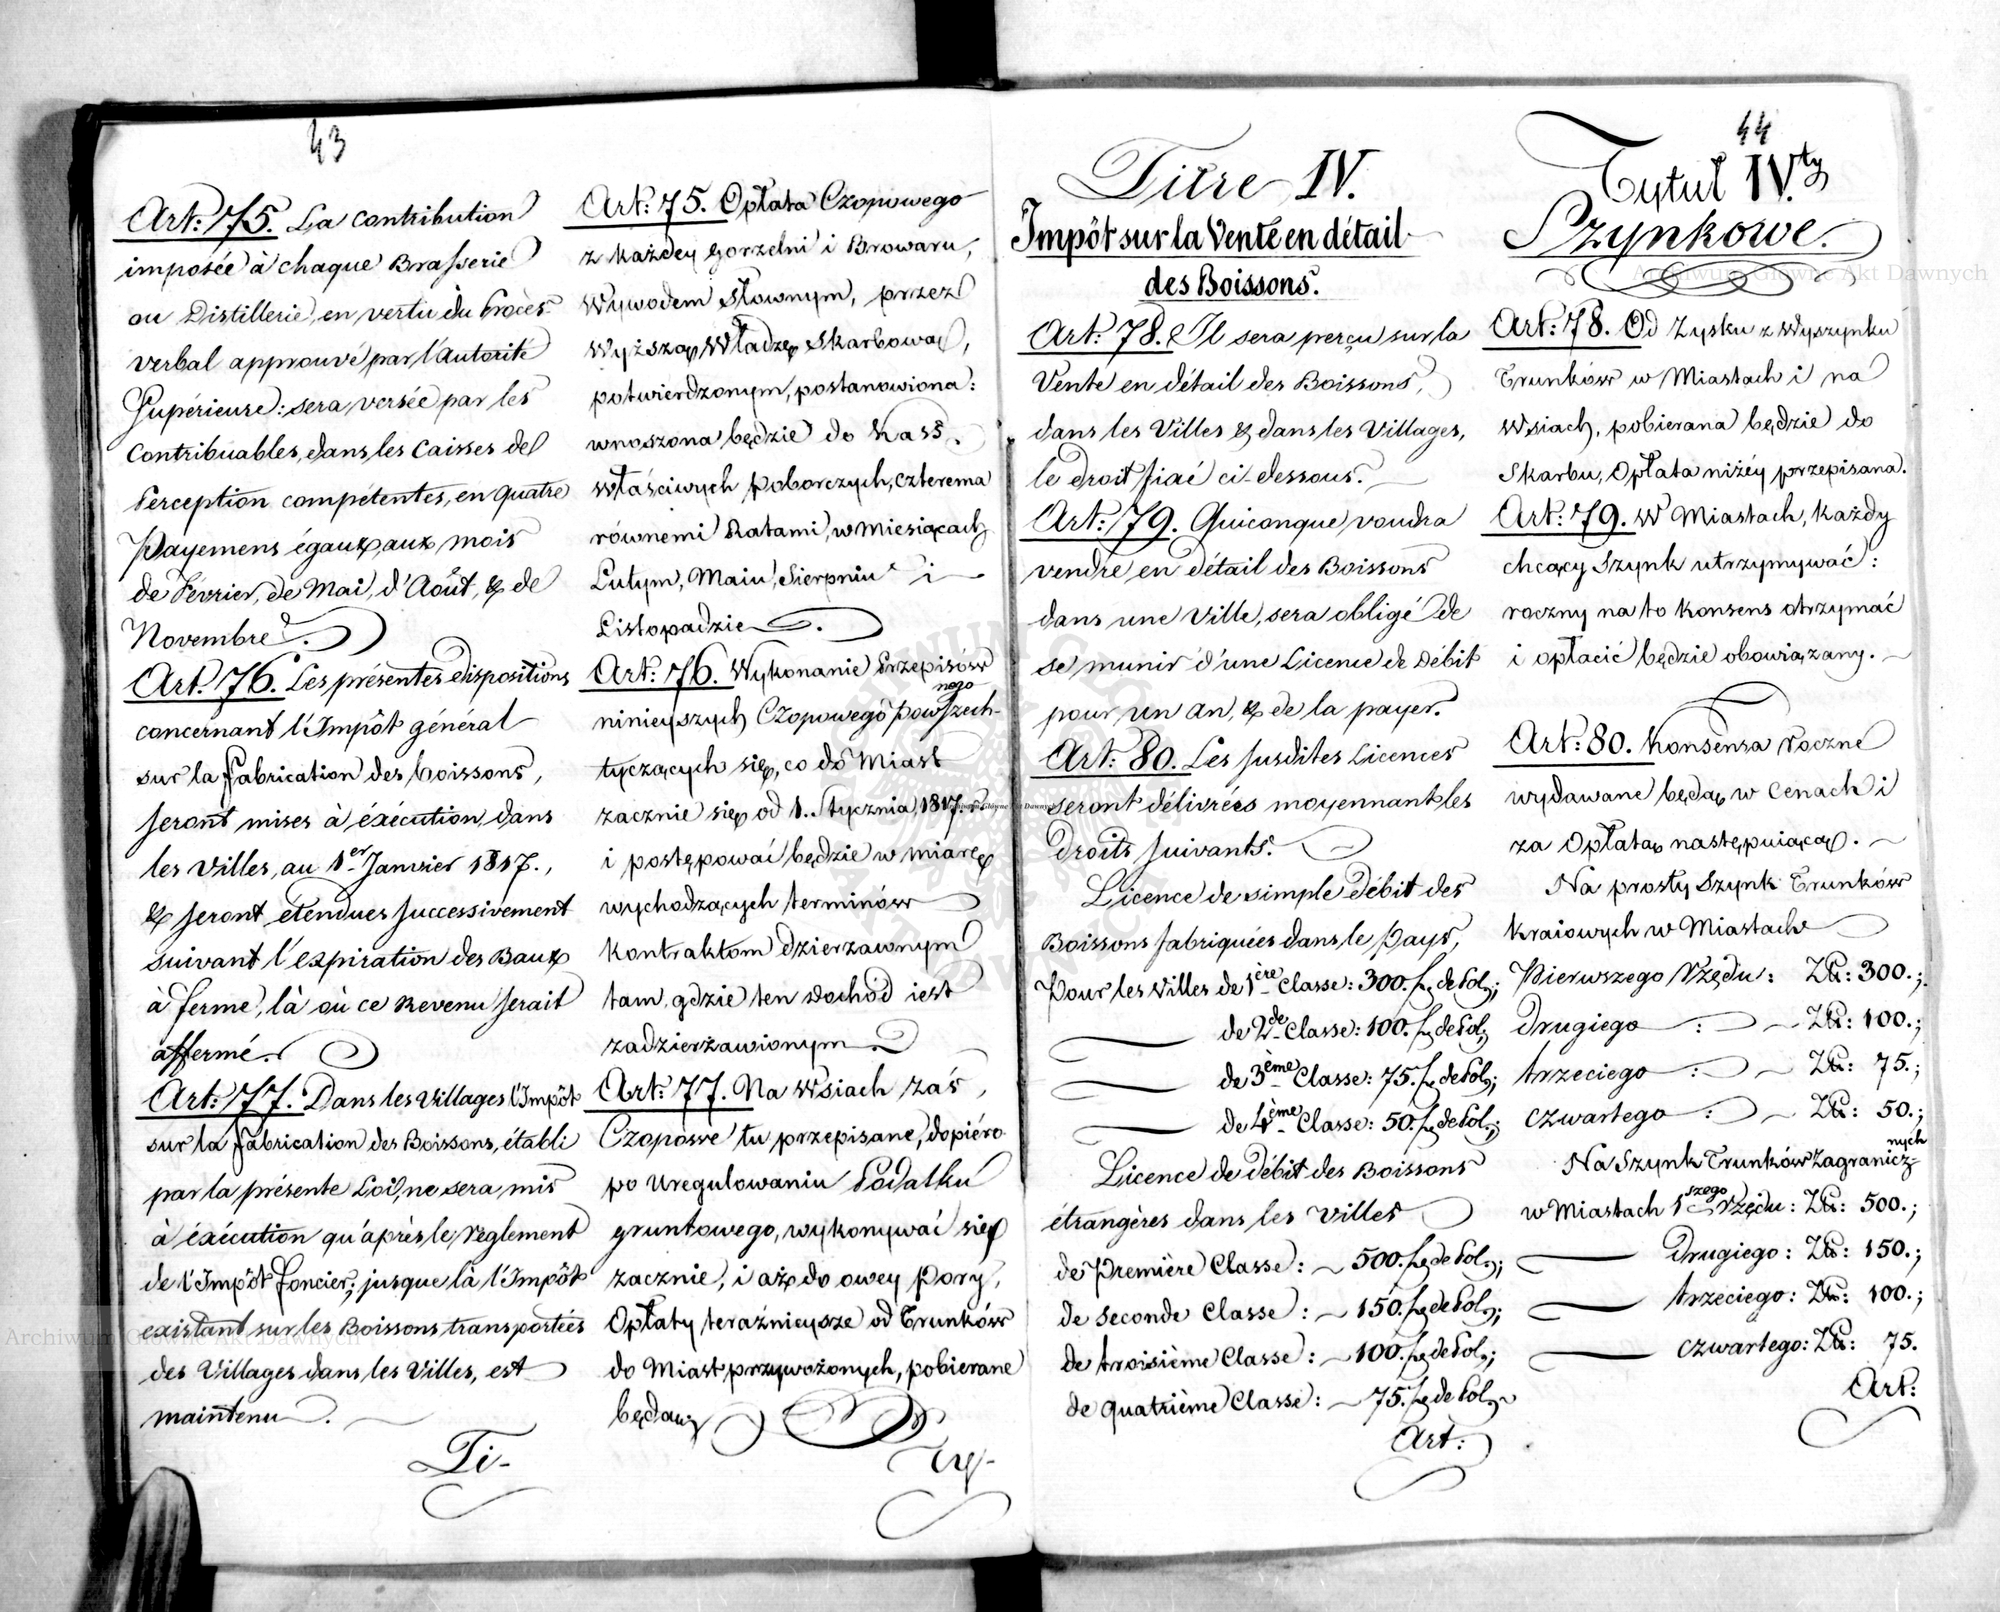 43
Art: 75. La contribution
imposée à chaque Brasserie
ou Distillerie, en vertu du Procès
verbal approuvé par l'Autorité
Supérieure: sera versée par les
Contribuables, dans les Caisses de
Perception compétentes, en quatre
Payemens égaux, aux mois
de Février, de Mai, d'Août, & de
Novembre.
Art. 76. Les présentes dispositions
concernant l'Impôt général
sur la Fabrication des boissons,
seront mises à éxécution, dans
les Villes, au 1er Janvier 1817.,
& seront étendues successivement
suivant l'expiration des Baux
à ferme, là où ce Revenu serait
affermé.
Art: 77. Dans les Villages l'Impôt
sur la Fabrication des Boissons, établi
par la présente Loi, ne sera mis
à éxécution qu'après le Règlement
de l'Impôt foncier; jusque là l'Impôt
existant sur les Boissons transportées
des Villages dans les Villes, est
maintenu.
Ti-
Art: 75. Opłata Czopowego
z każdey Gorzelni i Browaru,
Wywodem Słownym, przez
Wyższą Władzę Skarbową,
potwierdzonym, postanowiona:
wnoszona będzie do Kass
właściwych Poborczych, czterema
równemi Ratami, w Miesiącach
Lutym, Maiu, Sierpniu i
Listopadzie.
Art: 76. Wykonanie Przepisów
ninieyszych Czopowego Powszech-
nego
tyczących się, co do Miast
zacznie się od 1. Stycznia, 1817. r.
i postępować będzie w miarę
wychodzących terminów
kontraktom dzierzawnym
tam, gdzie ten dochód iest
zadzierżawionym.
Art: 77. Na Wsiach zaś,
Czopowe tu przepisane, dopiéro
po Uregulowaniu Podatku
gruntowego, wykonywać się
zacznie, i aż do owey Pory,
Opłaty teraźnieysze od Trunków
do Miast przywożonych, pobierane
będą.
Ty-
44
Titre IV.
Impôt sur la Vente en détail
des Boissons.
Art: 78. Il sera perçu sur la
Vente en détail des Boissons,
dans les Villes & dans les Villages,
le droit fixé ci-dessous.
Art: 79. Quiconque voudra
vendre en détail des Boissons
dans une Ville, sera obligé de
se munir d'une Licence de Débit
pour un an, & de la payer.
Art: 80. Les susdites Licences
seront délivrées moyennant les
droits suivants.
Licence de simple Débit des
Boissons fabriquées dans le Pays,
Pour les Villes de 1ère Classe: 300. f. de Pol.;
de 2de Classe: 100. f. de Pol.;
de 3ème Classe: 75. f. de Pol.;
de 4ème Classe: 50. f. de Pol.;
Licence de débit des Boissons
étrangères dans les Villes
de Première Classe: 500. f. de Pol.;
de seconde Classe: 150. f. de Pol.;
de troisième Classe: 100. f. de Pol.;
de quatrième Classe: 75. f. de Pol.
Art:
Tytuł IV.ty
Szynkowe.
Art: 78. Od Zysku z Wyszynku
Trunków w Miastach i na
Wsiach, pobierana będzie do
Skarbu, Opłata niżéy przepisana.
Art: 79. W Miastach, każdy
chcący Szynk utrzymywać:
roczny na to Konsens otrzymać
i opłacić będzie obowiązany.
Art: 80. Konsensa roczne
wydawane będą, w Cenach i
za Opłatą następuiącą.
Na prosty Szynk Trunków
kraiowych w Miastach
Pierwszego Rzędu: Zł: 300.;
drugiego: Zł: 100.;
trzeciego: Zł: 75.;
czwartego: Zł: 50.;
Na Szynk Trunków Zagranicz-
nych
w Miastach 1szego Rzędu: Zł: 500.;
drugiego: Zł: 150.;
trzeciego: Zł: 100.;
czwartego: Zł: 75.
Art:
Archiwum Główne Akt Dawnych
Archiwum Główne Akt Dawnych
Archiwum Główne Akt Dawnych